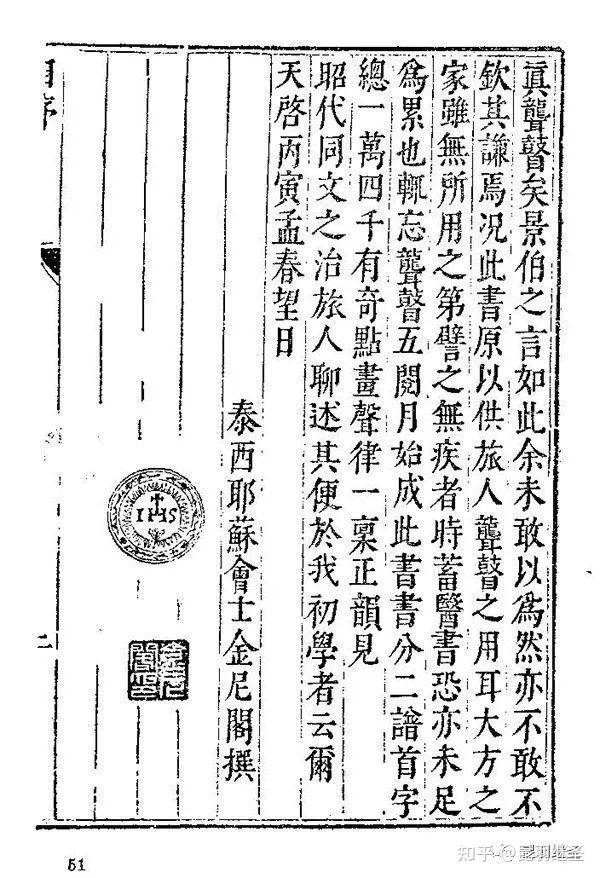 真聾瞽矣景伯之言如此余未敢以為然亦不敢不
欽其謙焉況此書原以供旅人聾瞽之用耳大方之
家雖無所用之第譬之無疾者時蓄醫書恐亦未足
為累也輒忘聾瞽五閱月始成此書書分二譜首字
總一萬四千有奇點畫聲律一稟正韻見
昭代同文之治旅人聊述其便於我初學者云爾
天啓丙寅孟春望日
泰西耶蘇會士金尼閣撰
IHS
自序
二
51
知乎 @昆羽继圣